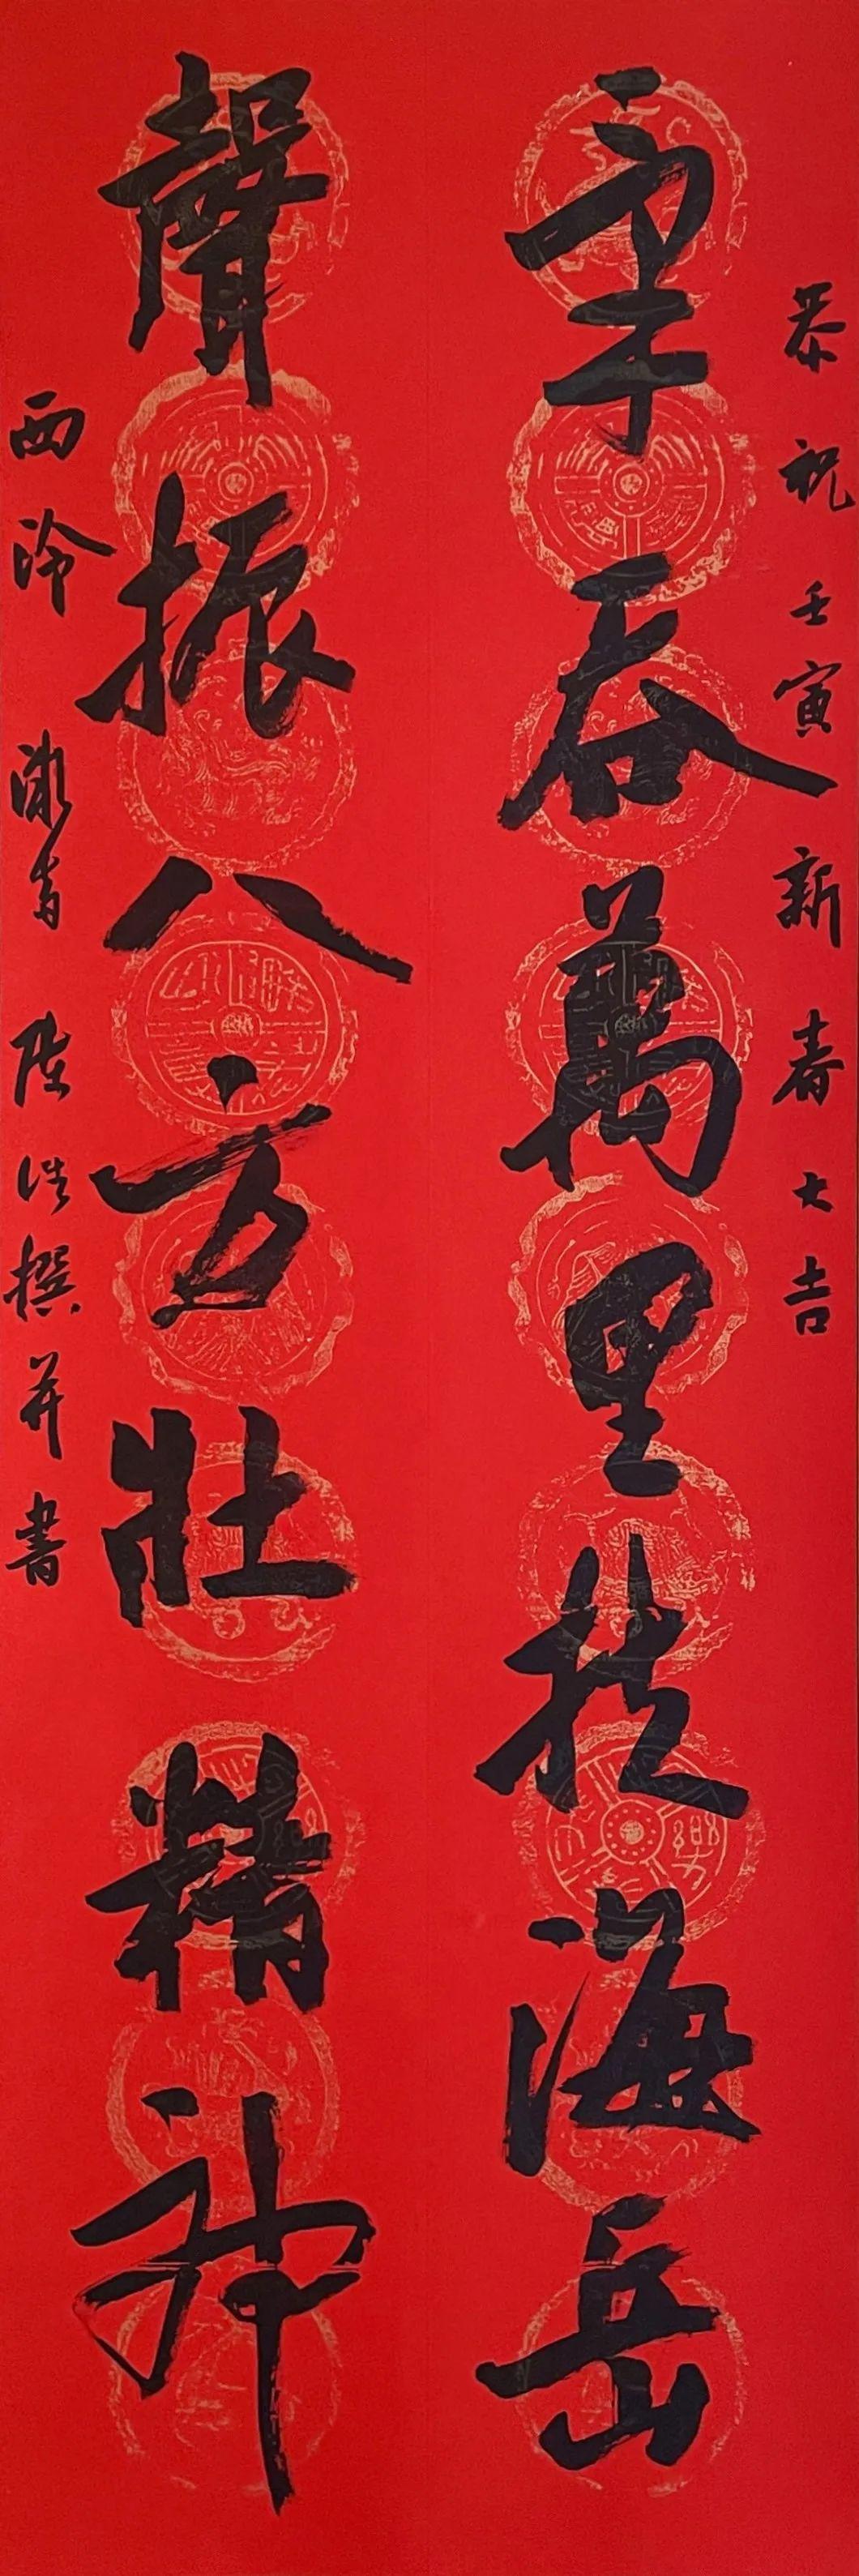 恭祝壬寅新春大吉
吞萬里海岳
聲振八方壯精神
西泠 陸浩撰并書